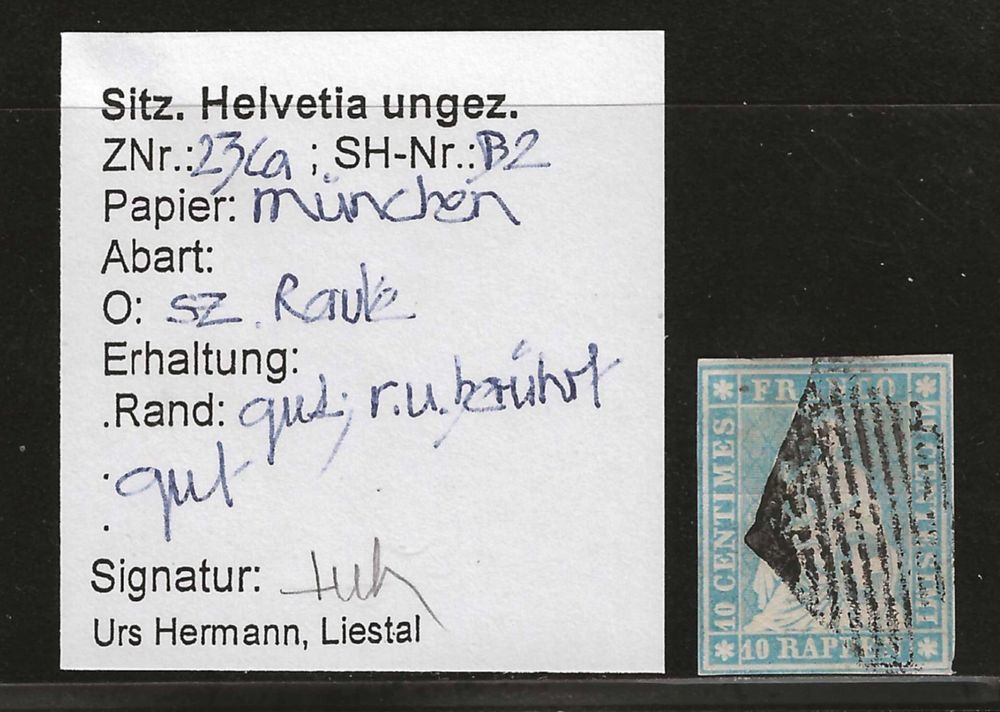 Sitz. Helvetia ungez.
ZNr.: 23Ca ; SH-Nr.: B2
Papier: München
Abart:
O: sz. Raute
Erhaltung:
.Rand: gut; r.u. berührt
. gut
.
Signatur:
Urs Hermann, Liestal
FRANCO
10 CENTIMES
10 CENTESIMI
10 RAPPEN